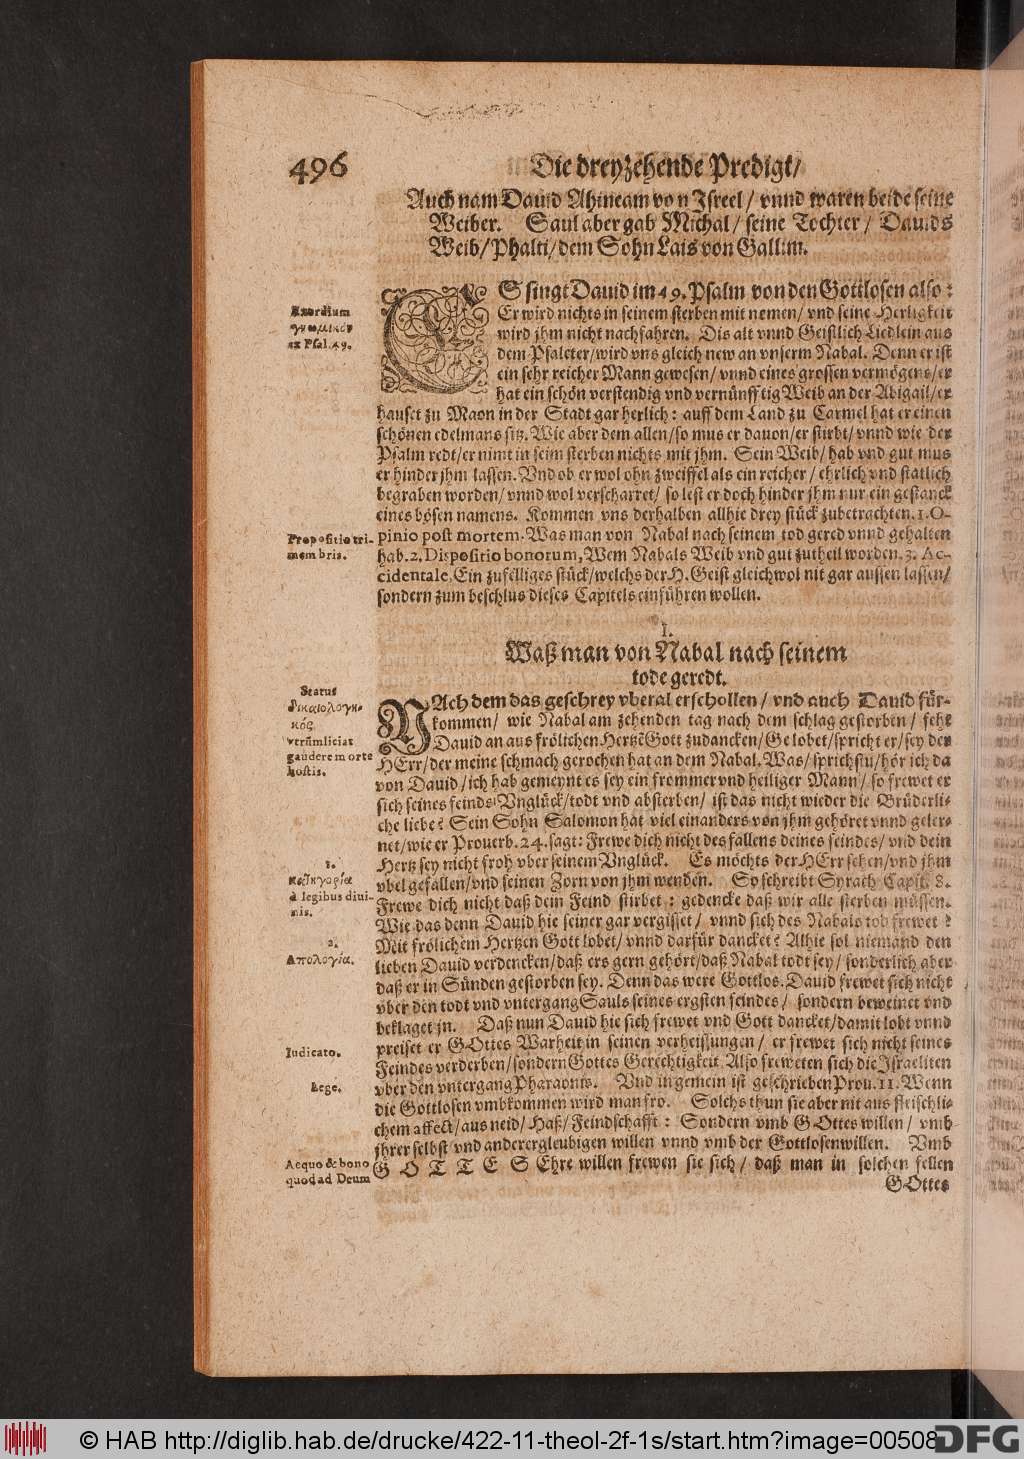 496
Die dreyzehende Predigt/
Auch nam Dauid Ahineam von Jsreel / vnnd waren beide seine
Weiber. Saul aber gab Michal / seine Tochter / Dauids
Weib / Phalti / dem Sohn Lais von Gallim.
Exordium
γνωμικόν
ex Psal. 49.
ES singt Dauid im 49. Psalm von den Gottlosen also:
Er wird nichts in seinem sterben mit nemen / vnd seine Herligkeit
wird jhm nicht nachfahren. Dis alt vnnd Geistlich Liedlein aus
dem Psalter / wird vns gleich new an vnserm Nabal. Denn er ist
ein sehr reicher Mann gewesen / vnnd eines grossen vermögens / er
hat ein schön verstendig vnd vernünfftig Weib an der Abigail / er
hauset zu Maon in der Stadt gar herlich: auff dem Land zu Carmel hat er einen
schönen edelmans sitz. Wie aber dem allen / so mus er dauon / er stirbt / vnnd wie der
Psalm redt / er nimt in seim sterben nichts mit jhm. Sein Weib / hab vnd gut mus
er hinder jhm lassen. Vnd ob er wol ohn zweiffel als ein reicher / ehrlich vnd statlich
begraben worden / vnnd wol verscharret / so lest er doch hinder jhm nur ein gestanck
eines bösen namens. Kommen vns derhalben allhie drey stück zubetrachten. 1. O-
Propositio tri-
membris.
pinio post mortem. Was man von Nabal nach seinem tod gered vnnd gehalten
hab. 2. Dispositio bonorum, Wem Nabals Weib vnd gut zutheil worden. 3. Ac-
cidentale, Ein zufelliges stück / welchs der H. Geist gleichwol nit gar aussen lassen /
sondern zum beschlus dieses Capitels einführen wollen.
I.
Waß man von Nabal nach seinem
tode geredt.
Status
δικαιολογι-
κός
vtrũm liciat
gaudere morte
hostis.
NAch dem das geschrey vberal erschollen / vnd auch Dauid für-
kommen / wie Nabal am zehenden tag nach dem schlag gestorben / feht
Dauid an aus frölichen Hertzẽ Gott zudancken / Gelobet / spricht er / sey der
HErr / der meine schmach gerochen hat an dem Nabal. Was / sprichstu / hör ich da
von Dauid / ich hab gemeynt es sey ein frommer vnd heiliger Mann / so frewet er
sich seines feinds Vnglück / todt vnd absterben / ist das nicht wieder die Brüderli-
che liebe? Sein Sohn Salomon hat viel einanders von jhm gehöret vnnd geler-
net / wie er Prouerb. 24. sagt: Frewe dich nicht des fallens deines feindes / vnd dein
Hertz sey nicht froh vber seinem Vnglück. Es möchts der HErr sehen / vnd jhm
1.
κατηγορία
à legibus diui-
nis.
vbel gefallen / vnd seinen Zorn von jhm wenden. So schreibt Syrach Capit. 8.
Frewe dich nicht daß dein Feind stirbet: gedencke daß wir alle sterben müssen.
Wie das denn Dauid hie seiner gar vergisset / vnnd sich des Nabals tod frewet?
2.
Απολογία.
Mit frölichem Hertzen Gott lobet / vnnd darfür dancket? Alhie sol niemand den
lieben Dauid verdencken / daß ers gern gehört / daß Nabal todt sey / sonderlich aber
daß er in Sünden gestorben sey. Denn das were Gottlos. Dauid frewet sich nicht
vber den todt vnd vntergang Sauls seines ergsten feindes / sondern beweinet vnd
beklaget jn. Daß nun Dauid hie sich frewet vnd Gott dancket / damit lobt vnnd
Iudicato.
preiset er GOttes Warheit in seinen verheissungen / er frewet sich nicht seines
Feindes verderben / sondern Gottes Gerechtigkeit. Also freweten sich die Jsraeliten
Lege.
vber den vntergang Pharaonis. Vnd in gemein ist geschrieben Prou. 11. Wenn
die Gottlosen vmbkommen wird man fro. Solchs thun sie aber nit aus fleischli-
chem affect / aus neid / Haß / Feindschafft: Sondern vmb GOttes willen / vmb
jhrer selbst vnd anderer gleubigen willen vnnd vmb der Gottlosen willen. Vmb
Aequo & bono
quod ad Deum
GOTTES Ehre willen frewen sie sich / daß man in solchen fellen
GOttes
© HAB http://diglib.hab.de/drucke/422-11-theol-2f-1s/start.htm?image=00508
DFG